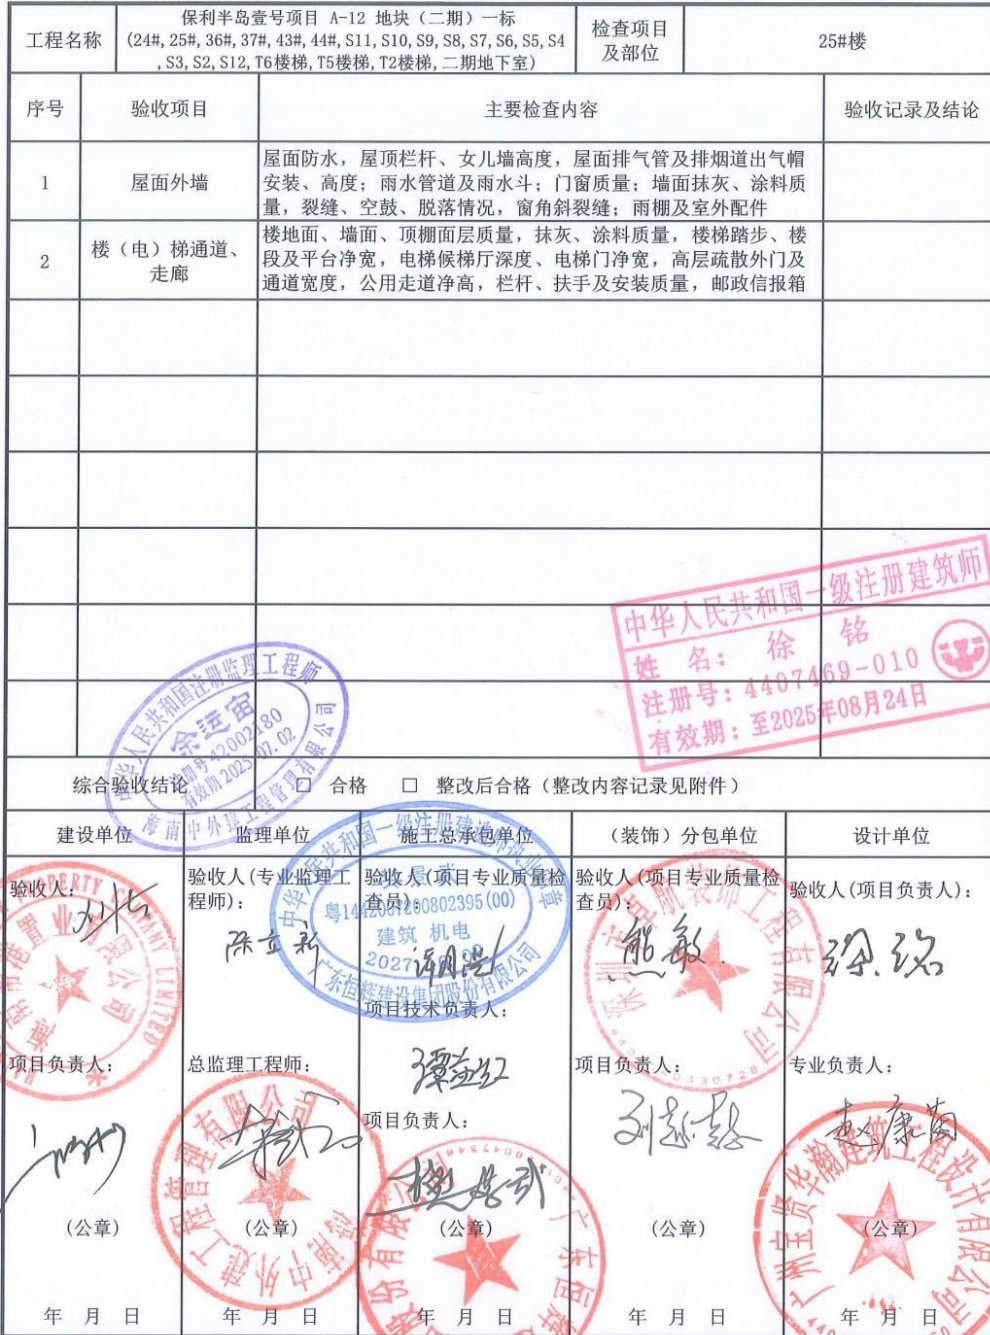 工程名称
保利半岛壹号项目 A-12 地块（二期）一标
(24#,25#,36#,37#,43#,44#,S11,S10,S9,S8,S7,S6,S5,S4
,S3,S2,S12,T6楼梯,T5楼梯,T2楼梯,二期地下室)
检查项目
及部位
25#楼
序号
验收项目
主要检查内容
验收记录及结论
1
屋面外墙
屋面防水，屋顶栏杆、女儿墙高度，屋面排气管及排烟道出气帽
安装、高度；雨水管道及雨水斗；门窗质量；墙面抹灰、涂料质
量，裂缝、空鼓、脱落情况，窗角斜裂缝；雨棚及室外配件
2
楼（电）梯通道、
走廊
楼地面、墙面、顶棚面层质量，抹灰、涂料质量，楼梯踏步、楼
段及平台净宽，电梯候梯厅深度、电梯门净宽，高层疏散外门及
通道宽度，公用走道净高，栏杆、扶手及安装质量，邮政信报箱
中华人民共和国一级注册建筑师
姓 名：徐 铭
注册号：4407469-010
有效期：至2025年08月24日
中华人民共和国注册监理工程师
余运宙
注册号 42002180
有效期 2025.07.02
海南中外建工程管理有限公司
综合验收结论
□ 合格 □ 整改后合格（整改内容记录见附件）
建设单位
监理单位
施工总承包单位
（装饰）分包单位
设计单位
验收人：
验收人(专业监理工
程师)：
陈立新
验收人(项目专业质量检
查员)：
粤1442007200802395(00)
建筑 机电
广东恒辉建设集团股份有限公司
验收人(项目专业质量检
查员)：
熊敏
验收人(项目负责人)：
项目技术负责人：
项目负责人：
总监理工程师：
项目负责人：
项目负责人：
专业负责人：
赵康南
（公章）
（公章）
（公章）
（公章）
（公章）
海南中外建工程管理有限公司
广州宝贤华瀚建筑工程设计有限公司
年 月 日
年 月 日
年 月 日
年 月 日
年 月 日